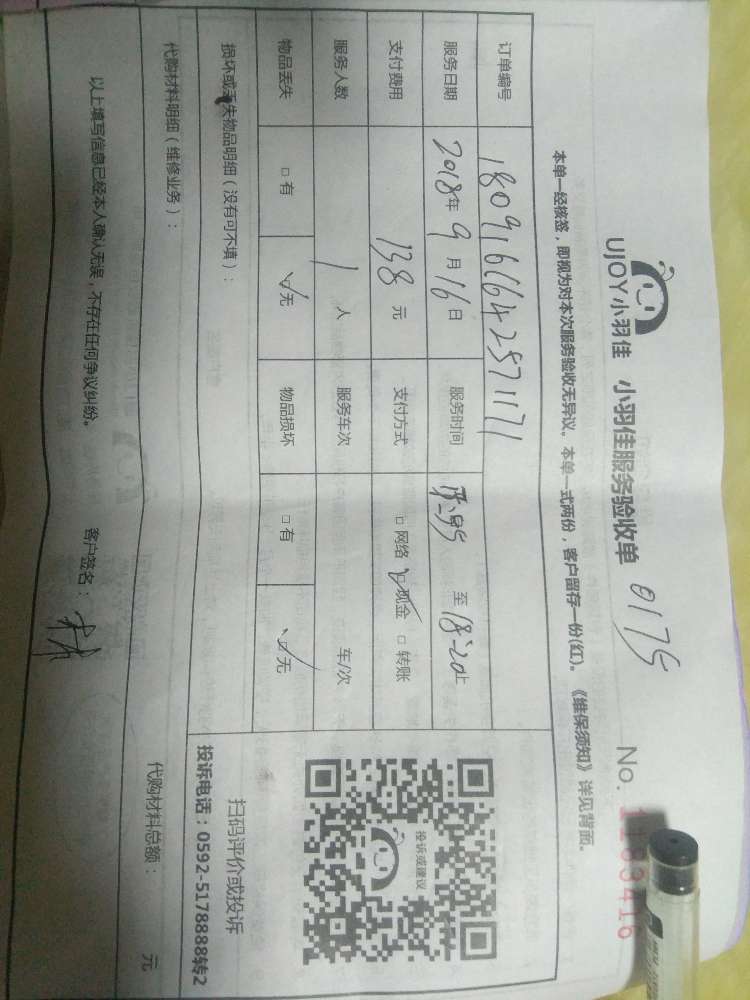 UJOY小羽佳 小羽佳服务验收单 0175 No. 1133416
本单一经核签,即视为对本次服务验收无异议。本单一式两份,客户留存一份(红)。《维保须知》详见背面。
订单编号 1809166642571171
服务日期 2018年9月16日 服务时间 至 18:20止
支付费用 138元 支付方式 □网络 ☑现金 □转账
服务人数 1 人 服务车次 车/次
物品丢失 □有 ☑无 物品损坏 □有 ☑无
损坏或丢失物品明细(没有可不填):
投诉或建议
扫码评价或投诉
投诉电话:0592-5178888转2
代购材料明细(维修业务): 代购材料总额: 元
以上填写信息已经本人确认无误,不存在任何争议纠纷。 客户签名:林